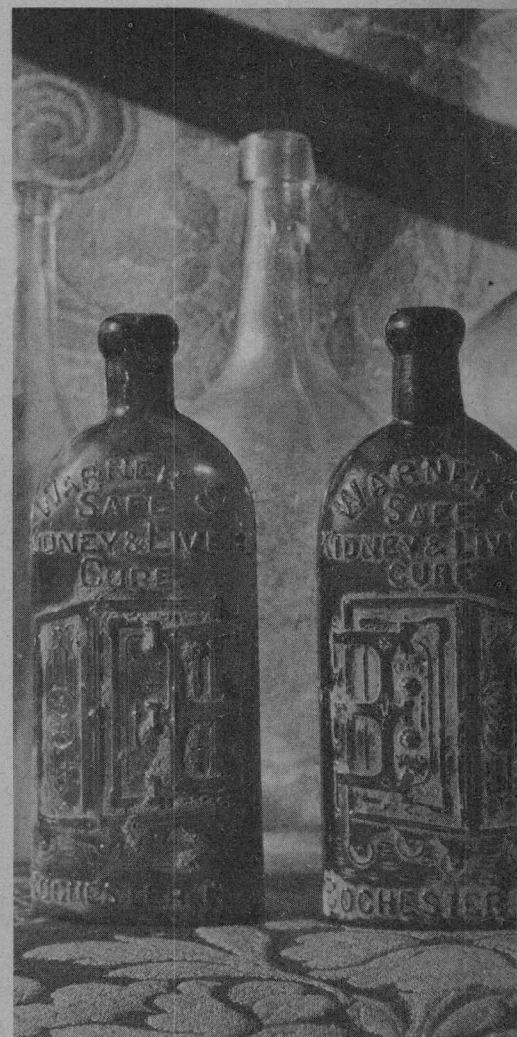 WARNER'S
SAFE
KIDNEY & LIVER
CURE
ROCHESTER N.
WARNER'S
SAFE
KIDNEY & LIV
CURE
ROCHESTER